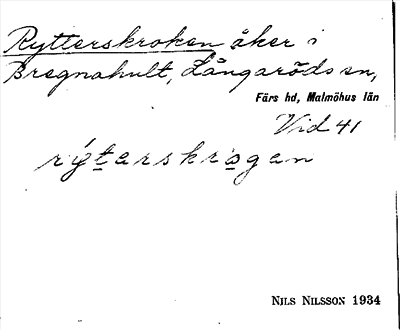 Rytterskroken åker i
Bregnahult, Långaröds sn,
Färs hd, Malmöhus län
Vid 41
rýterskrogen
NILS NILSSON 1934